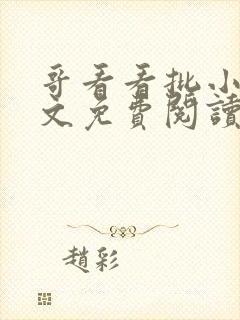 哥看看批小
文免費閱讀
趙彩